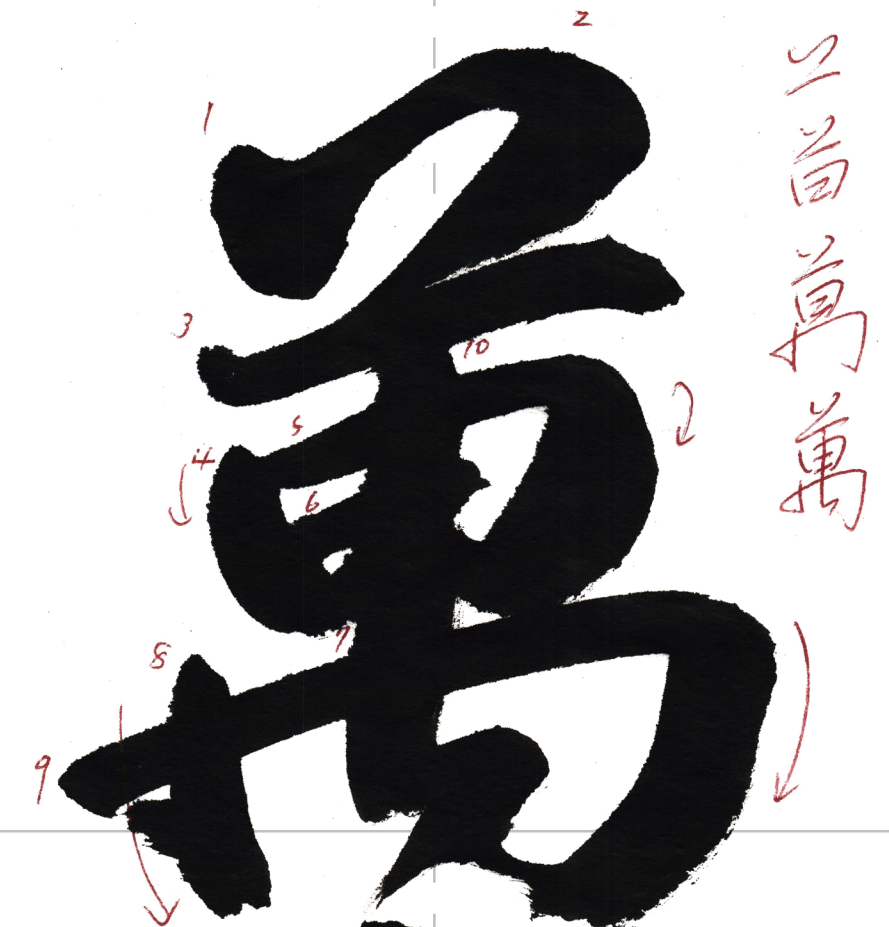 萬
1
2
3
4
5
6
7
8
9
10
萬